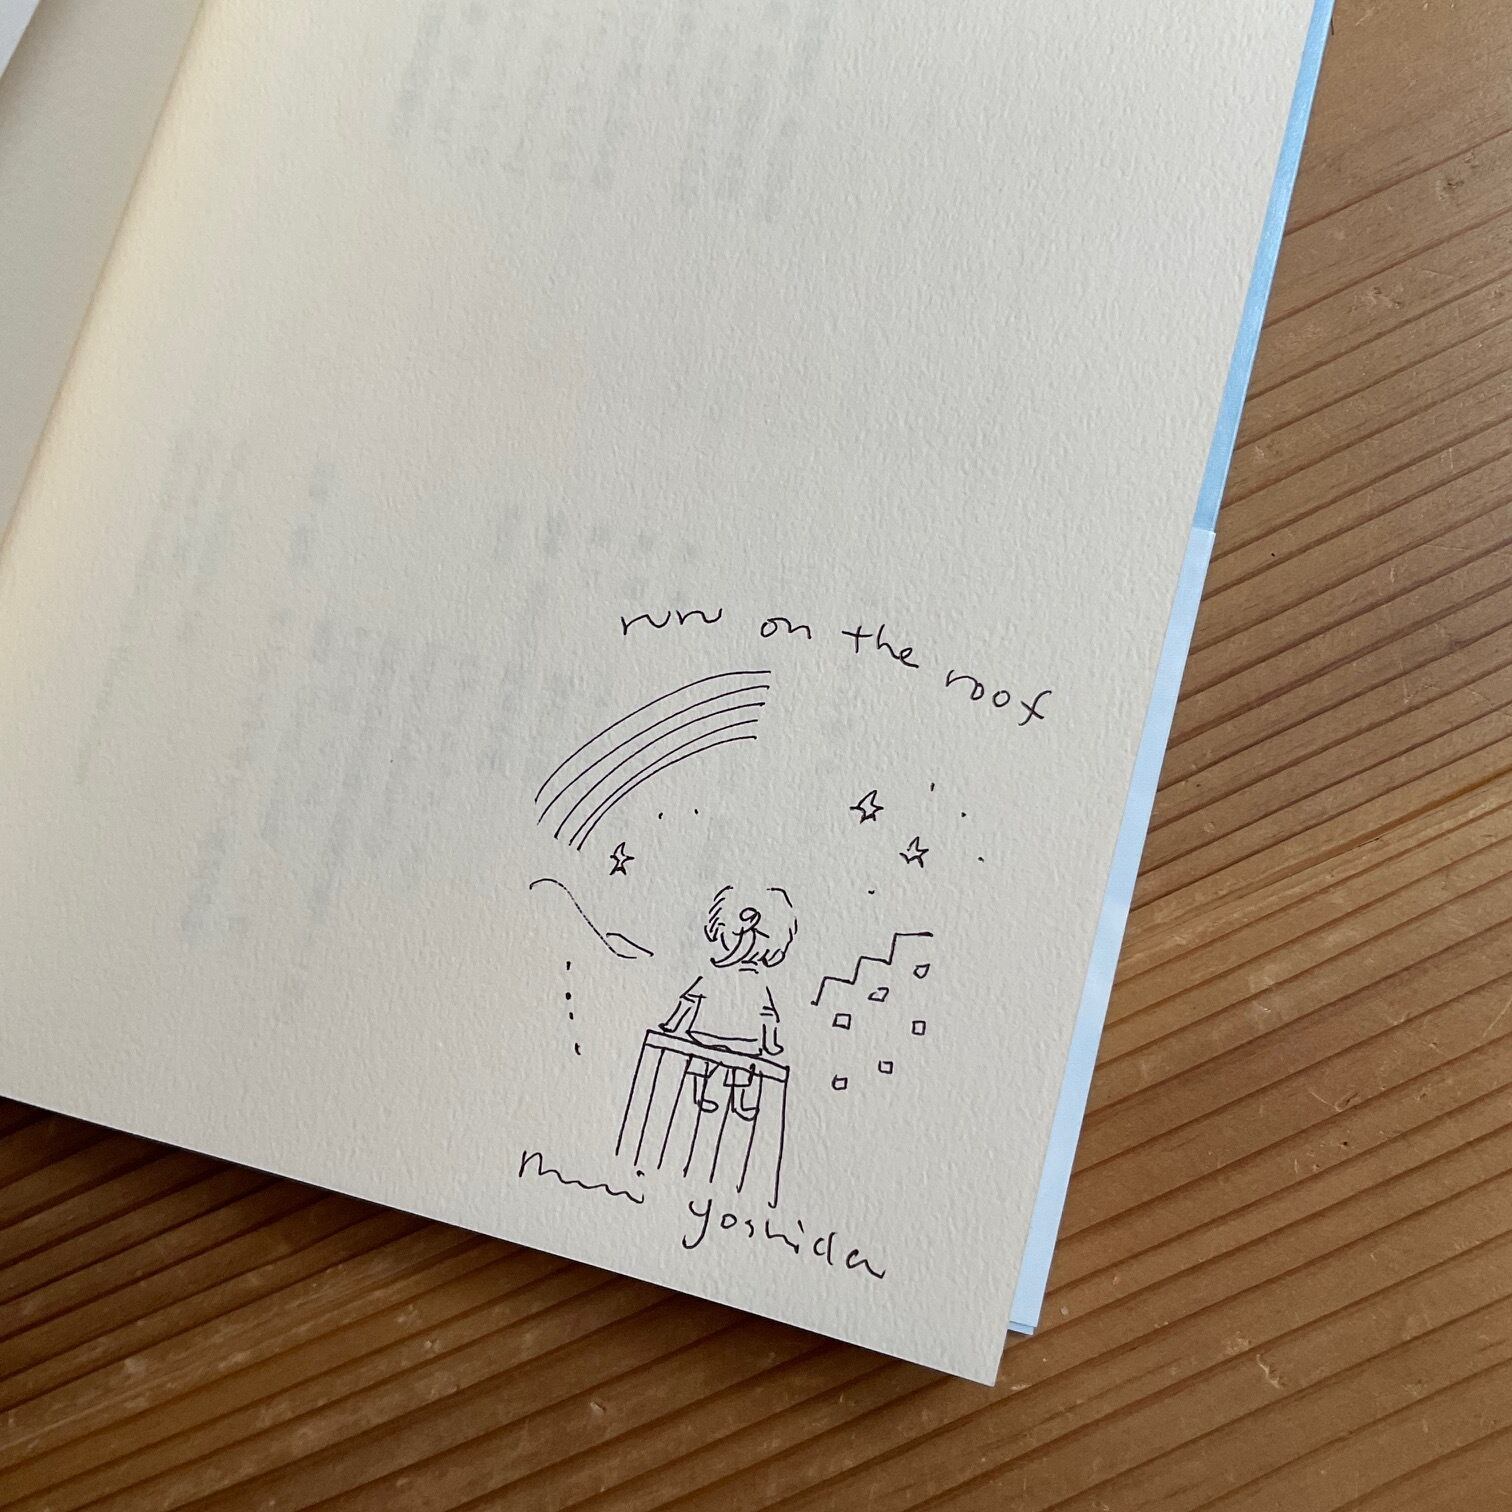 run on the roof
yoshida